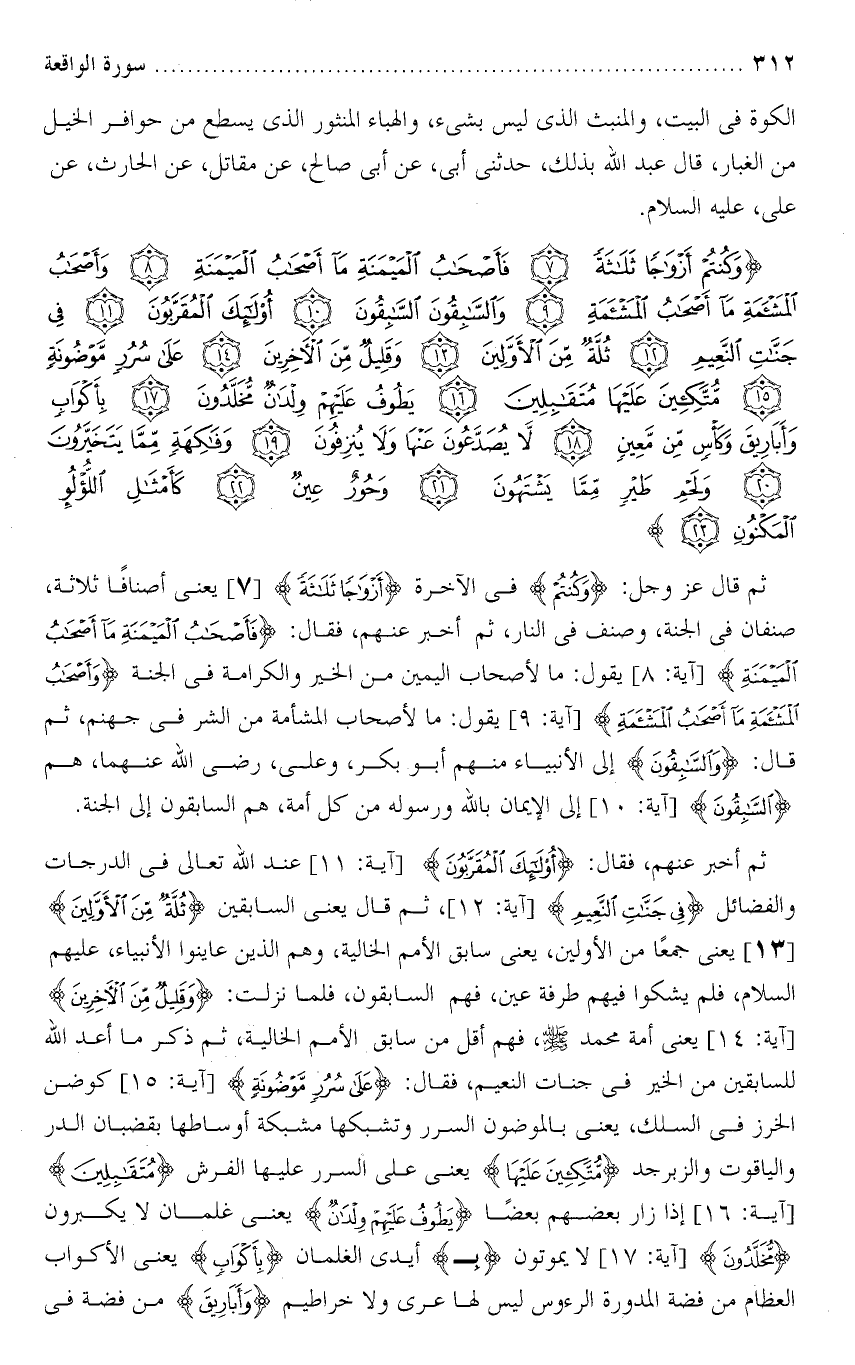 ٣١٢ ........................................................................ سورة الواقعة
الكوة فى البيت، والمنبث الذى ليس بشىء، والهباء المنثور الذى يسطع من حوافر الخيل
من الغبار، قال عبد الله بذلك، حدثنى أبى، عن أبى صالح، عن مقاتل، عن الحارث، عن
على، عليه السلام.
﴿وَكُنتُمْ أَزْوَٰجًا ثَلَٰثَةً ﴿٧﴾ فَأَصْحَٰبُ ٱلْمَيْمَنَةِ مَآ أَصْحَٰبُ ٱلْمَيْمَنَةِ ﴿٨﴾ وَأَصْحَٰبُ
ٱلْمَشْـَٔمَةِ مَآ أَصْحَٰبُ ٱلْمَشْـَٔمَةِ ﴿٩﴾ وَٱلسَّٰبِقُونَ ٱلسَّٰبِقُونَ ﴿١٠﴾ أُو۟لَٰٓئِكَ ٱلْمُقَرَّبُونَ ﴿١١﴾ فِى
جَنَّٰتِ ٱلنَّعِيمِ ﴿١٢﴾ ثُلَّةٌ مِّنَ ٱلْأَوَّلِينَ ﴿١٣﴾ وَقَلِيلٌ مِّنَ ٱلْءَاخِرِينَ ﴿١٤﴾ عَلَىٰ سُرُرٍ مَّوْضُونَةٍ
﴿١٥﴾ مُّتَّكِـِٔينَ عَلَيْهَا مُتَقَٰبِلِينَ ﴿١٦﴾ يَطُوفُ عَلَيْهِمْ وِلْدَٰنٌ مُّخَلَّدُونَ ﴿١٧﴾ بِأَكْوَابٍ
وَأَبَارِيقَ وَكَأْسٍ مِّن مَّعِينٍ ﴿١٨﴾ لَّا يُصَدَّعُونَ عَنْهَا وَلَا يُنزِفُونَ ﴿١٩﴾ وَفَٰكِهَةٍ مِّمَّا يَتَخَيَّرُونَ
﴿٢٠﴾ وَلَحْمِ طَيْرٍ مِّمَّا يَشْتَهُونَ ﴿٢١﴾ وَحُورٌ عِينٌ ﴿٢٢﴾ كَأَمْثَٰلِ ٱللُّؤْلُؤِ
ٱلْمَكْنُونِ ﴿٢٣﴾ ﴾
ثم قال عز وجل: ﴿وَكُنتُمْ﴾ فى الآخرة ﴿أَزْوَٰجًا ثَلَٰثَةً﴾ [٧] يعنى أصنافًا ثلاثة،
صنفان فى الجنة، وصنف فى النار، ثم أخبر عنهم، فقال: ﴿فَأَصْحَٰبُ ٱلْمَيْمَنَةِ مَآ أَصْحَٰبُ
ٱلْمَيْمَنَةِ﴾ [آية: ٨] يقول: ما لأصحاب اليمين من الخير والكرامة فى الجنة ﴿وَأَصْحَٰبُ
ٱلْمَشْـَٔمَةِ مَآ أَصْحَٰبُ ٱلْمَشْـَٔمَةِ﴾ [آية: ٩] يقول: ما لأصحاب المشأمة من الشر فى جهنم، ثم
قال: ﴿وَٱلسَّٰبِقُونَ﴾ إلى الأنبياء منهم أبو بكر، وعلى، رضى الله عنهما، هم
﴿ٱلسَّٰبِقُونَ﴾ [آية: ١٠] إلى الإيمان بالله ورسوله من كل أمة، هم السابقون إلى الجنة.
ثم أخبر عنهم، فقال: ﴿أُو۟لَٰٓئِكَ ٱلْمُقَرَّبُونَ﴾ [آية: ١١] عند الله تعالى فى الدرجات
والفضائل ﴿فِى جَنَّٰتِ ٱلنَّعِيمِ﴾ [آية: ١٢]، ثم قال يعنى السابقين ﴿ثُلَّةٌ مِّنَ ٱلْأَوَّلِينَ﴾
[١٣] يعنى جمعًا من الأولين، يعنى سابق الأمم الخالية، وهم الذين عاينوا الأنبياء، عليهم
السلام، فلم يشكوا فيهم طرفة عين، فهم السابقون، فلما نزلت: ﴿وَقَلِيلٌ مِّنَ ٱلْءَاخِرِينَ﴾
[آية: ١٤] يعنى أمة محمد ﷺ، فهم أقل من سابق الأمم الخالية، ثم ذكر ما أعد الله
للسابقين من الخير فى جنات النعيم، فقال: ﴿عَلَىٰ سُرُرٍ مَّوْضُونَةٍ﴾ [آية: ١٥] كوضن
الخرز فى السلك، يعنى بالموضون السرر وتشبكها مشبكة أوساطها بقضبان الدر
والياقوت والزبرجد ﴿مُّتَّكِـِٔينَ عَلَيْهَا﴾ يعنى على السرر عليها الفرش ﴿مُتَقَٰبِلِينَ﴾
[آية: ١٦] إذا زار بعضهم بعضًا ﴿يَطُوفُ عَلَيْهِمْ وِلْدَٰنٌ﴾ يعنى غلمان لا يكبرون
﴿مُّخَلَّدُونَ﴾ [آية: ١٧] لا يموتون ﴿بِـ﴾ أيدى الغلمان ﴿بِأَكْوَابٍ﴾ يعنى الأكواب
العظام من فضة المدورة الرءوس ليس لها عرى ولا خراطيم ﴿وَأَبَارِيقَ﴾ من فضة فى